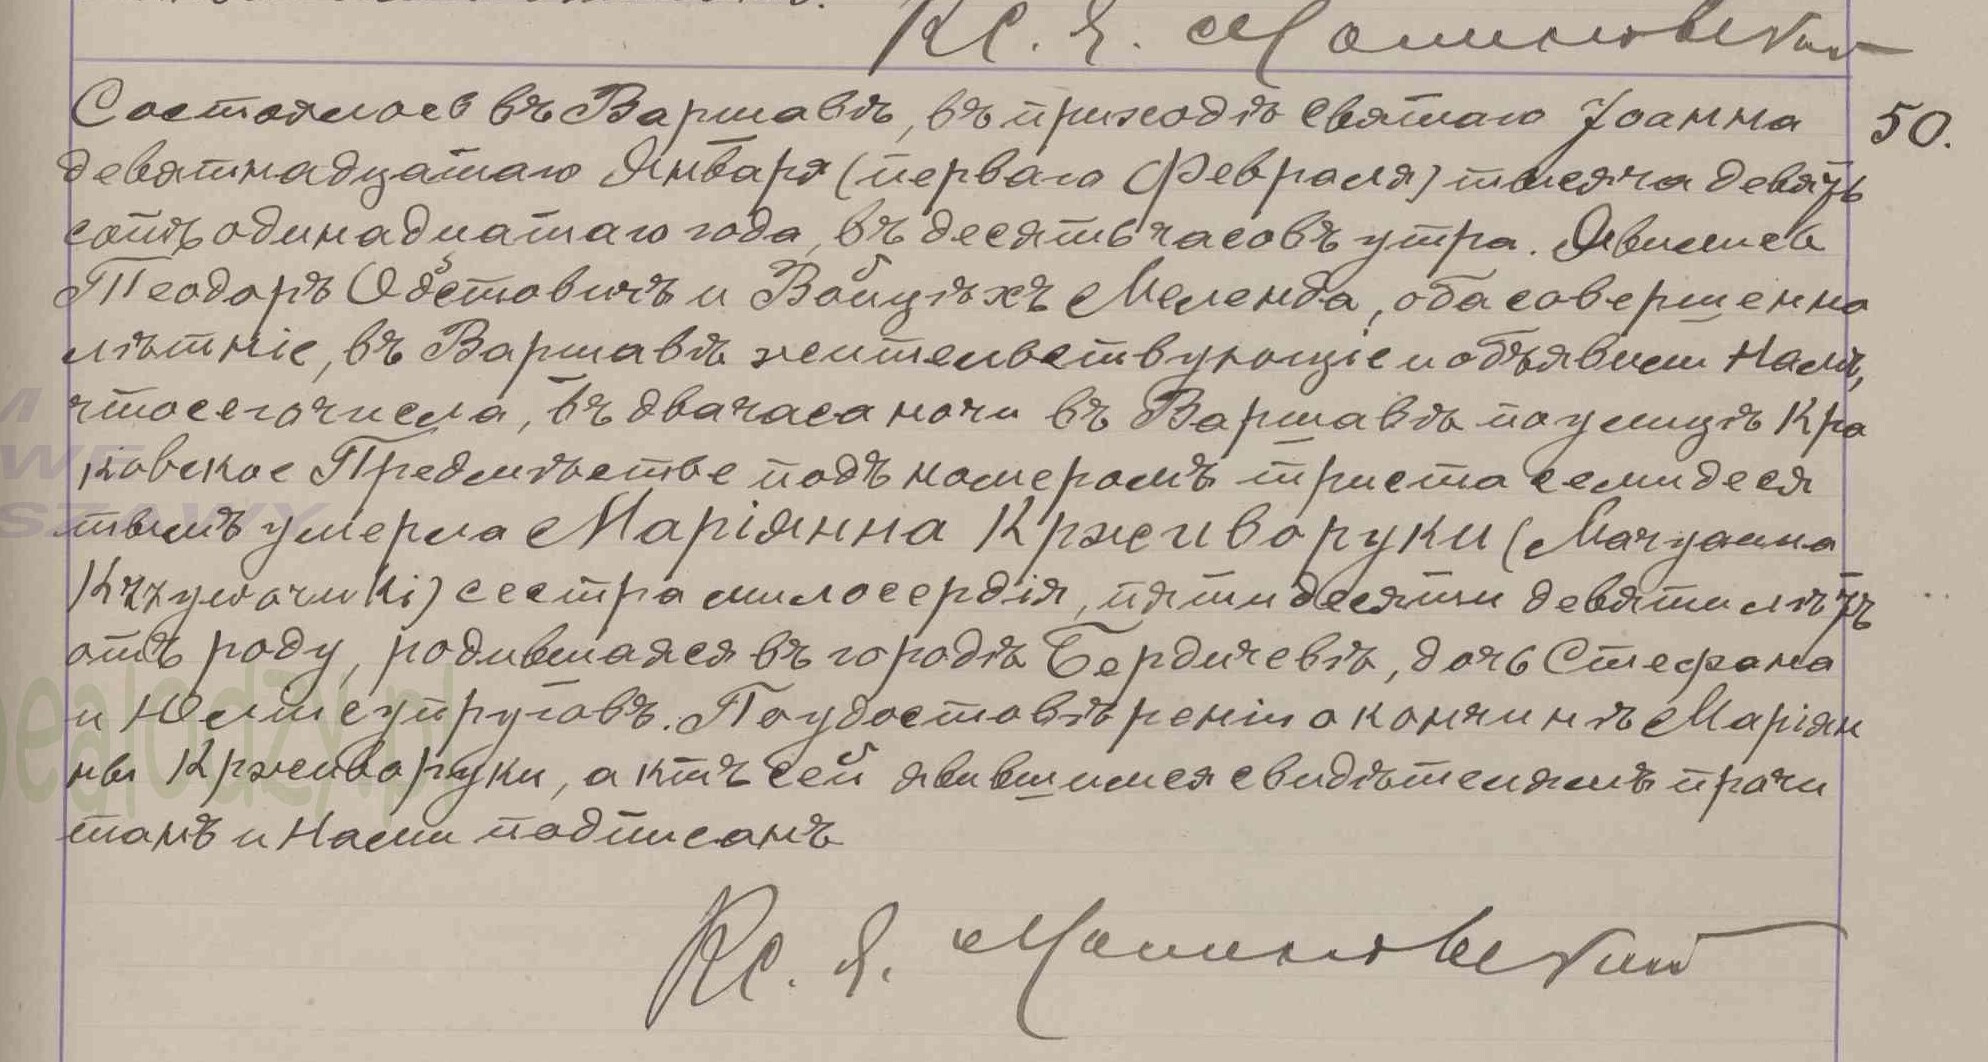 Кс. Я. Малиновский
Состоялось въ Варшавѣ, въ приходѣ святаго Іоанна
50.
девятнадцатаго Января (перваго Февраля) тысяча девять
сотъ одинадцатаго года, въ десять часовъ утра. Явились
Теодоръ Обстовичъ и Войцѣхъ Меленда, оба совершенно
лѣтніе, въ Варшавѣ жительствующіе и объявили Намъ,
что сего числа, въ два часа ночи въ Варшавѣ по улицѣ Кра
ковское Предмѣстье подъ номеромъ триста семидеся
тымъ умерла Маріянна Крживоруки (Maryanna
Krzyworuki) сестра милосердія, пятидесяти девяти лѣтъ
отъ роду, родившаяся въ городѣ Бердичевѣ, дочь Стефана
и Юліи супруговъ. По удостовѣреніи о кончинѣ Маріян
ны Крживоруки, актъ сей явившимся свидѣтелямъ прочи
танъ и Нами подписанъ
Кс. Я. Малиновский